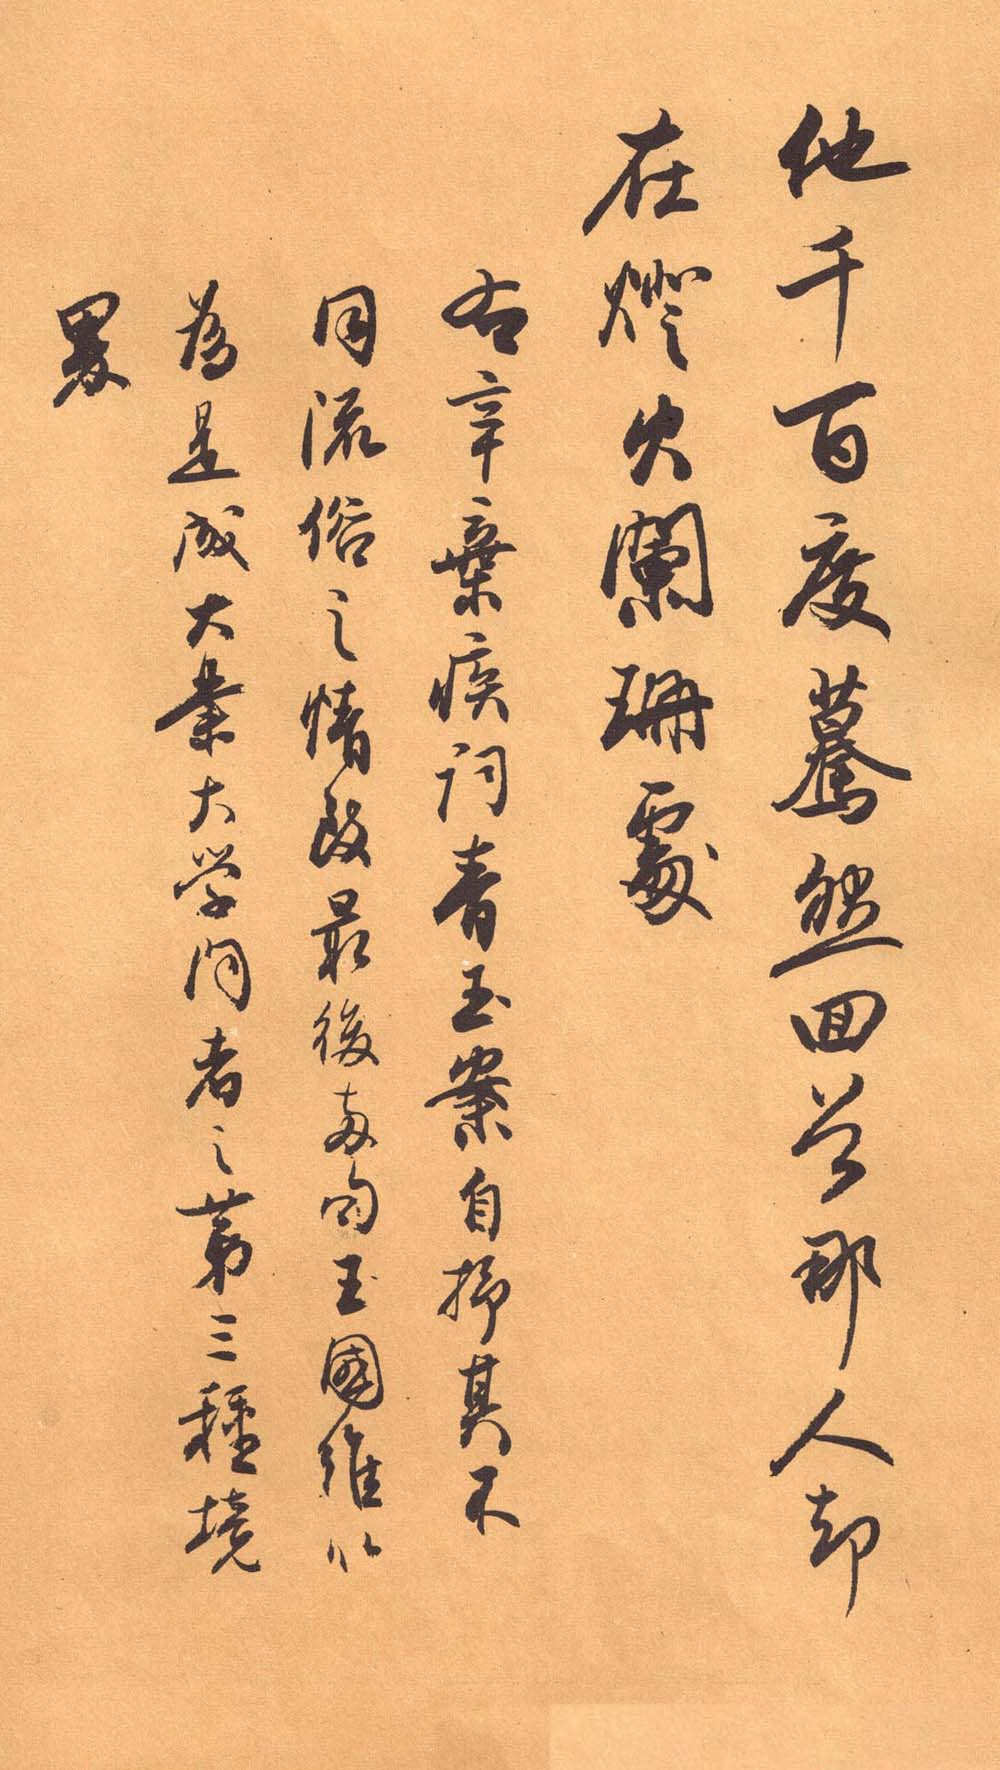 他千百度驀然回首那人却
在燈火闌珊處
右辛棄疾詞青玉案自抒其不
同流俗之情致最後兩句王國維以
為是成大業大学问者之第三種境
界